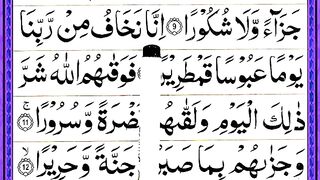 جَزَآءً وَّلَا شُكُوْرًا ۝٩ اِنَّا نَخَافُ مِنْ رَّبِّنَا
يَوْمًا عَبُوْسًا قَمْطَرِيْرًا فَوَقٰىهُمُ اللّٰهُ شَرَّ
ذٰلِكَ الْيَوْمِ وَلَقّٰىهُمْ نَضْرَةً وَّسُرُوْرًا ۝١١
وَجَزٰىهُمْ بِمَا صَبَرُوْا جَنَّةً وَّحَرِيْرًا ۝١٢